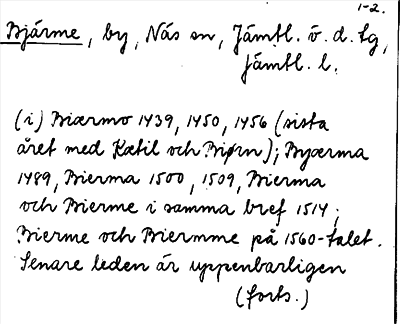 1-2.
Bjärme, by, Näs sn, Jämtl. v. d. tg,
Jämtl. l.
(i) Biærmo 1439, 1450, 1456 (sista
året med Kætil och Biørn); Byærma
1489, Bierma 1500, 1509, Bierma
och Bierme i samma bref 1514;
Bierme och Biermme på 1560-talet.
Senare leden är uppenbarligen
(forts.)